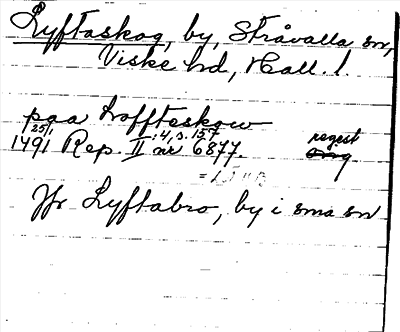 Lyftaskog, by, Stråvalla sn,
Viske hd, Hall. l.
paa Loffteskow
25/1 1491 Rep. II:4, s. 157 nr 6877. regest
Jfr Lyftabro, by i sma sn